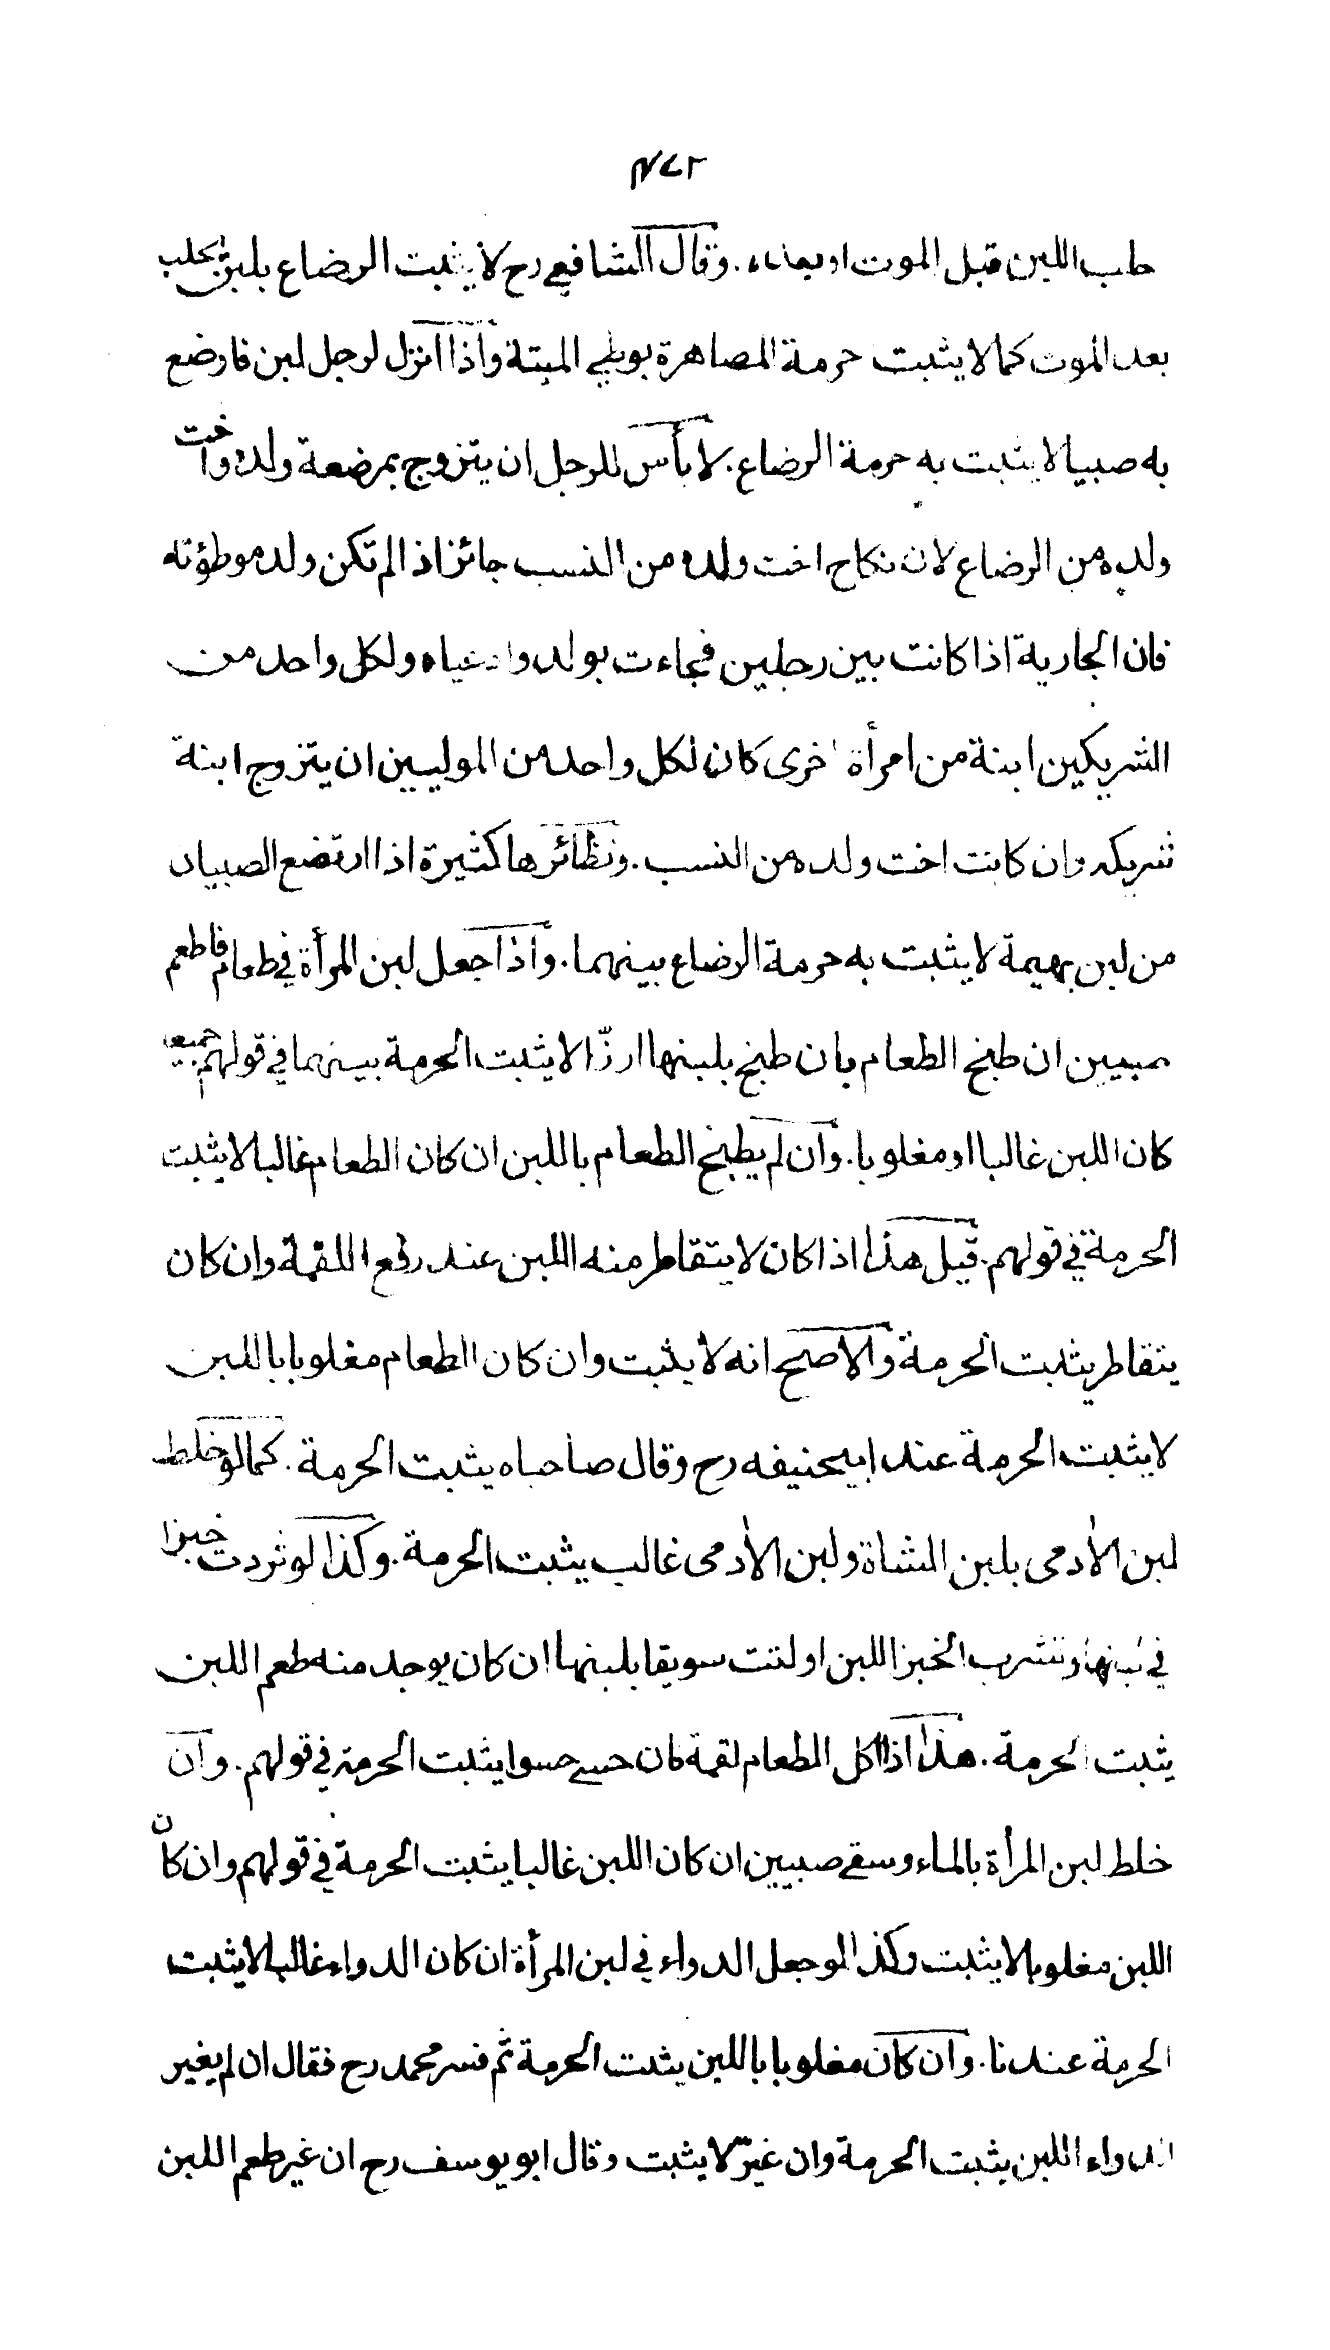 ٤٧٢
حلب اللبن قبل الموت او بعده. وقال الشافعي رح لا يثبت الرضاع بلبن يحلب
بعد الموت كما لا يثبت حرمة المصاهرة بوطي الميتة واذا انزل لرجل لبن فارضع
به صبيا لا يثبت به حرمة الرضاع. لا بأس للرجل ان يتزوج بمرضعة ولده واخت
ولده من الرضاع لان نكاح اخت ولده من النسب جائز اذا لم تكن ولد موطؤته
فان الجارية اذا كانت بين رجلين فجاءت بولد وادعياه ولكل واحد من
الشريكين ابنة من امرأة اخرى كان لكل واحد من الموليين ان يتزوج ابنة
شريكه وان كانت اخت ولده من النسب. ونظائرها كثيرة اذا ارتضع الصبيان
من لبن بهيمة لا يثبت به حرمة الرضاع بينهما. واذا جعل لبن المرأة في طعام فاطعم
صبيين ان طبخ الطعام بان طبخ بلبنها ارزّا لا يثبت الحرمة بينهما في قولهم جميعا
كان اللبن غالبا او مغلوبا. وان لم يطبخ الطعام باللبن ان كان الطعام غالبا لا يثبت
الحرمة في قولهم. قيل هذا اذا كان لا يتقاطر منه اللبن عند رفع اللقمة وان كان
يتقاطر يثبت الحرمة والاصح انه لا يثبت وان كان الطعام مغلوبا باللبن
لا يثبت الحرمة عند ابيحنيفه رح وقال صاحباه يثبت الحرمة. كما لو خلط
لبن الأدمى بلبن الشاة ولبن الأدمى غالب يثبت الحرمة. وكذا لو ثردت خبزا
في لبنها وتشرب الخبز اللبن او لتت سويقا بلبنها ان كان يوجد منه طعم اللبن
يثبت الحرمة. هذا اذا اكل الطعام لقمة فان حسى حسوا يثبت الحرمة في قولهم. وان
خلط لبن المرأة بالماء وسقى صبيين ان كان اللبن غالبا يثبت الحرمة في قولهم وان كان
اللبن مغلوبا لا يثبت وكذا لو جعل الدواء في لبن المرأة ان كان الدواء غالبا لا يثبت
الحرمة عندنا. وان كان مغلوبا باللبن يثبت الحرمة ثم فسر محمد رح فقال ان لم يغير
الدواء اللبن يثبت الحرمة وان غيّر لا يثبت وقال ابو يوسف رح ان غير طعم اللبن